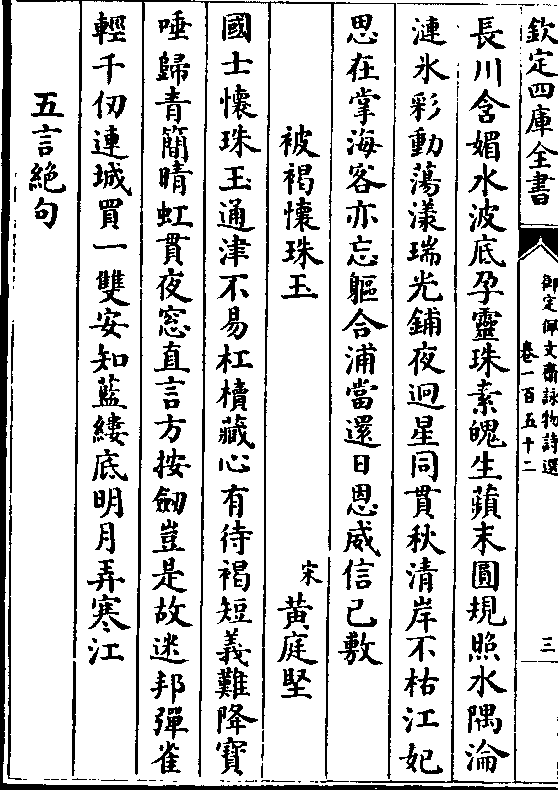 欽定四庫全書
御定佩文齋詠物詩選
卷一百五十二
三
長川含媚水波底孕靈珠素魄生蘋末圓規照水隅淪
漣氷彩動蕩漾瑞光鋪夜迥星同貫秋清岸不枯江妃
思在掌海客亦忘軀合浦當還日恩威信已敷
被褐懷珠玉
宋
黃庭堅
國士懷珠玉通津不易杠櫝藏心有待褐短義難降寳
唾歸青簡晴虹貫夜窓直言方按劒豈是故迷邦彈雀
輕千仞連城買一雙安知藍縷底明月弄寒江
五言絶句